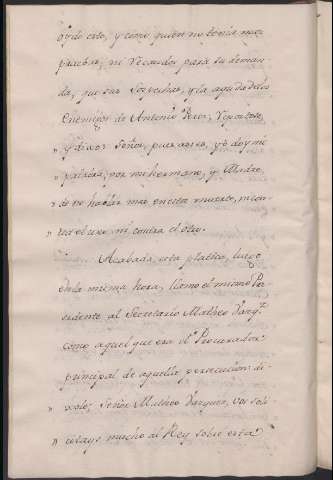 oydo esto, y como quien no tenia mas
pruebas, ni recaudos para su deman-
da, que sus sospechas, y la ayuda de los
Enemigos de Antonio Perez,
" y dixo: Señor, pues assi es, yo doy mi
" palabra, por mi hermano, y Madre,
" de no hablar mas en esta muerte, ni con-
" tra el uno, ni contra el otro.
Acabada esta platica, luego
en la misma hora, llamó el mismo Pre-
sidente al Secretario Matheo Vazqz
como aquel que era el Procurador
principal de aquella persecucion: di-
" xole; Señor Matheo Vazquez, vos soli-
" citays mucho al Rey sobre esta